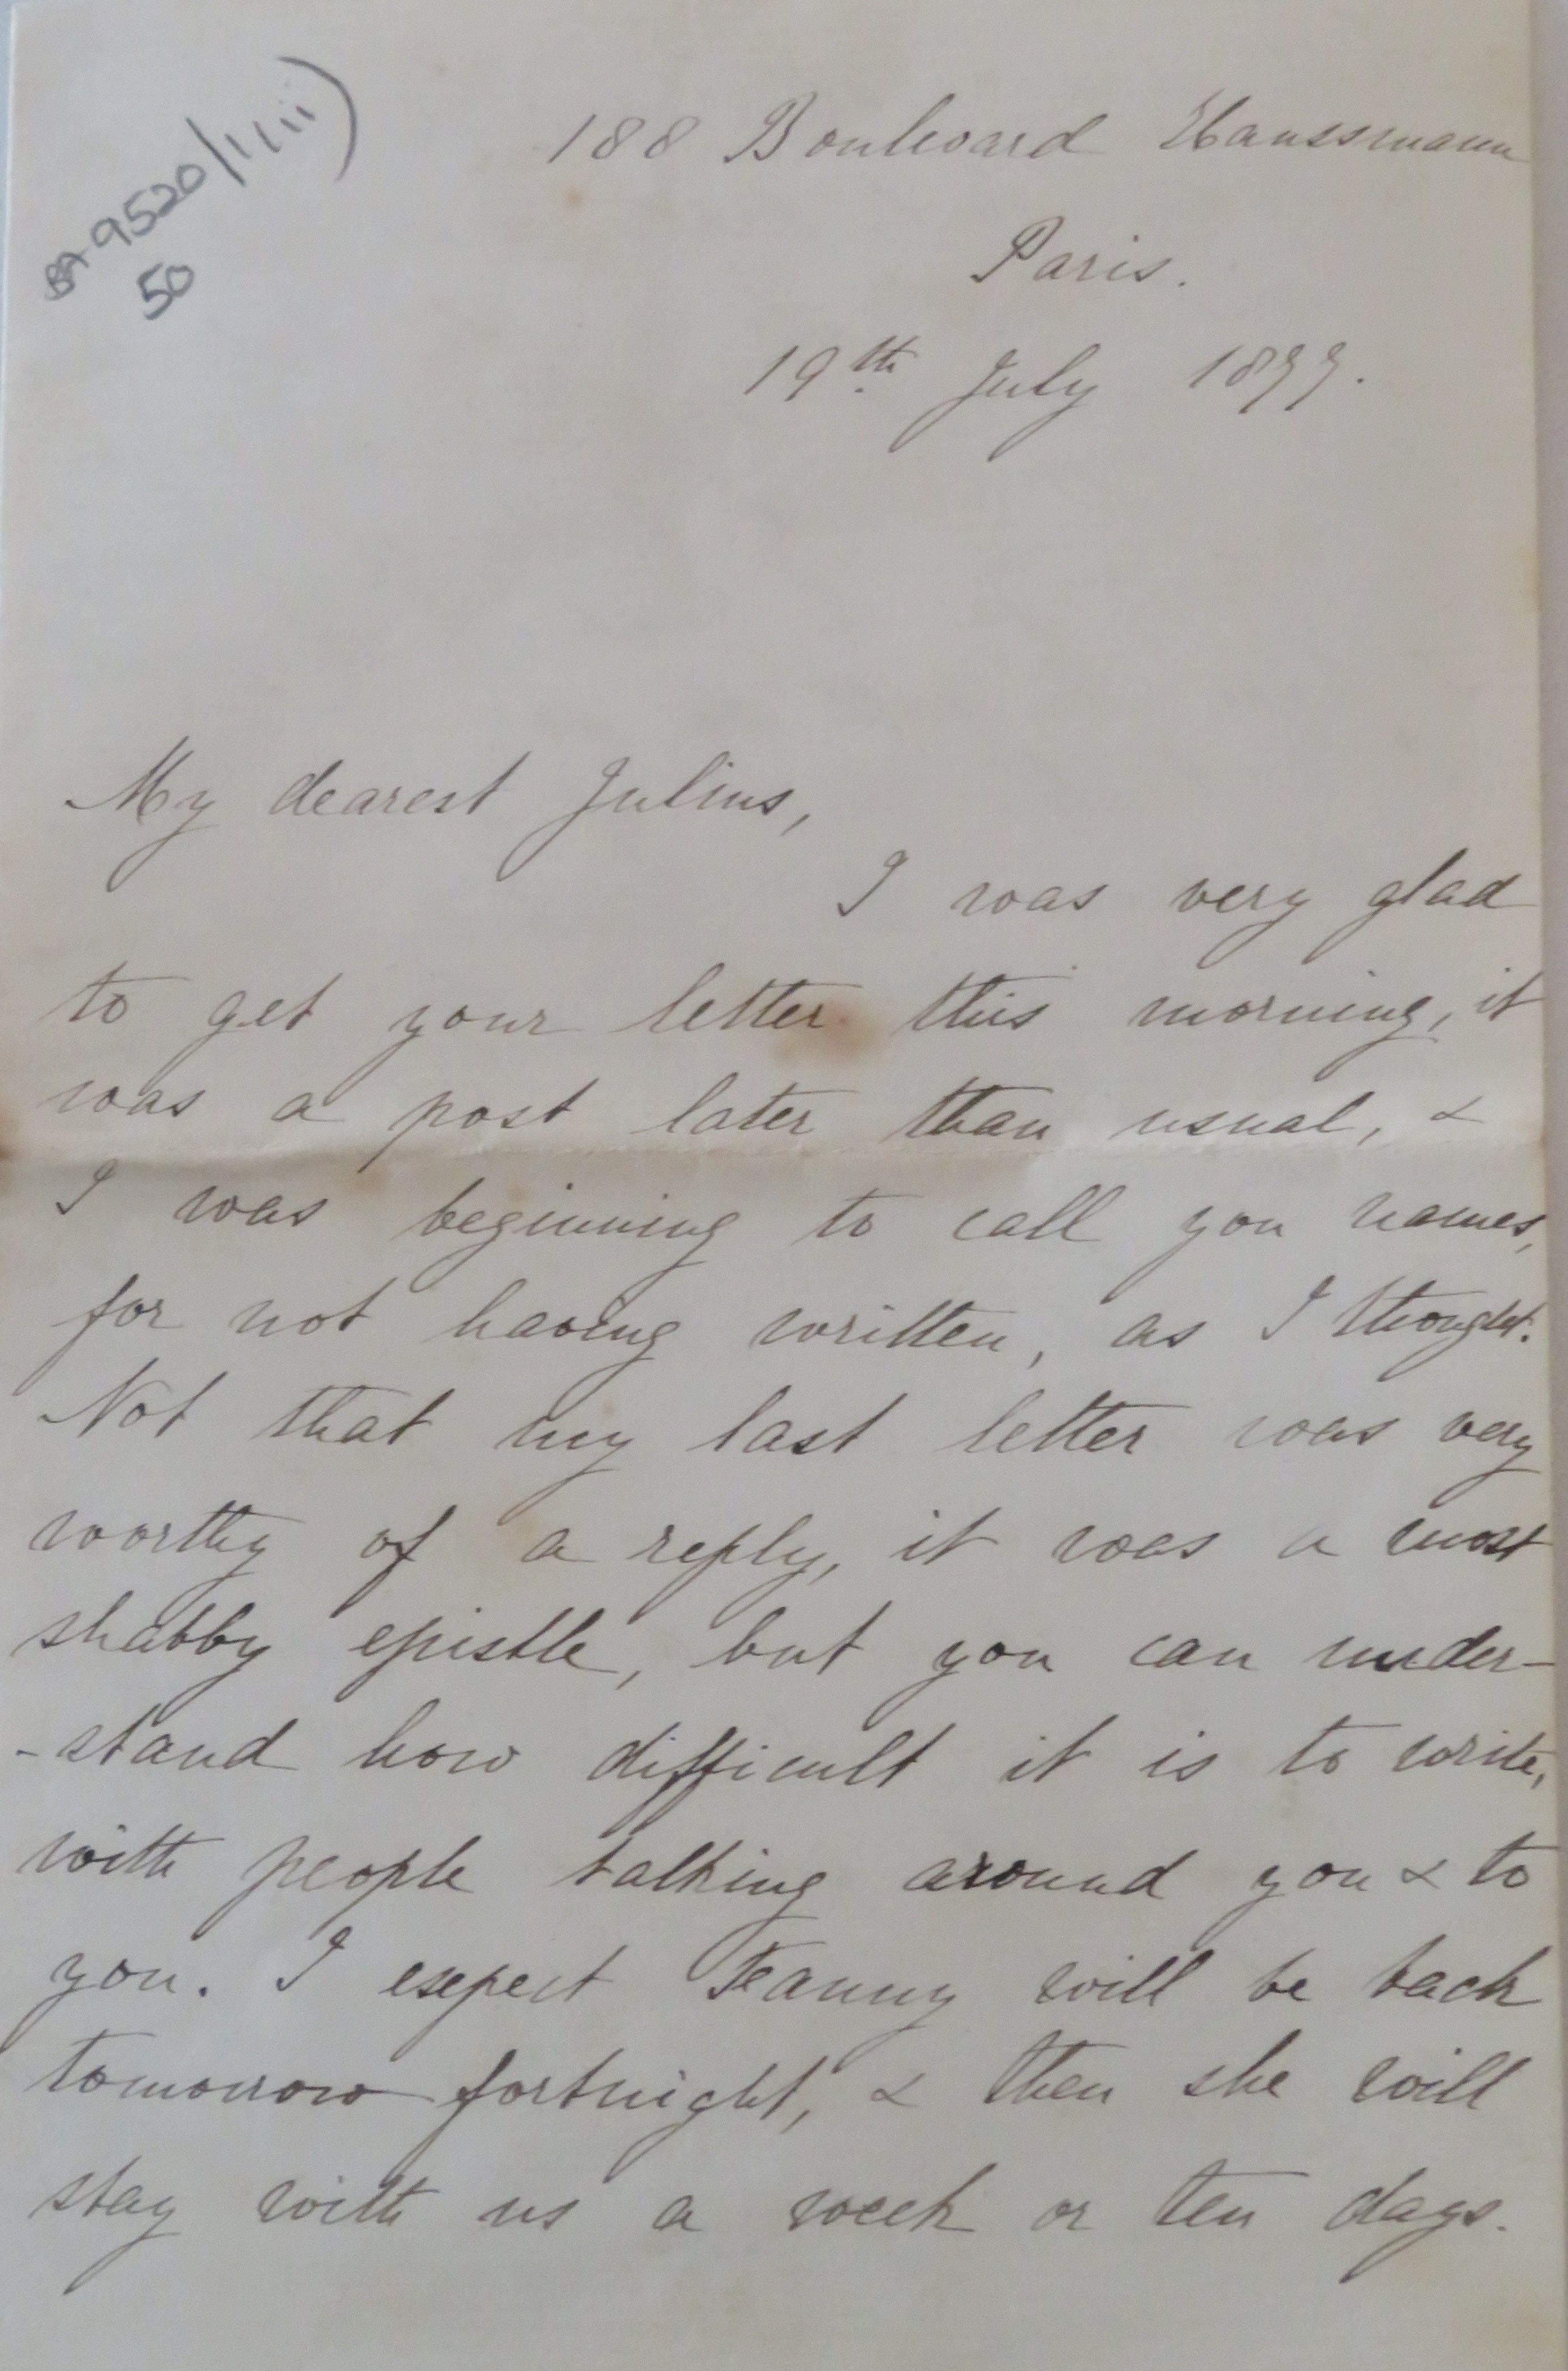 BA 9520/1(ii)
50
188 Boulevard Haussmann
Paris.
19th. July 1877.
My dearest Julius,
I was very glad
to get your letter this morning, it
was a post later than usual, &
I was beginning to call you names,
for not having written, as I thought.
Not that my last letter was very
worthy of a reply, it was a most
shabby epistle, but you can under-
-stand how difficult it is to write,
with people talking around you & to
you. I expect Fanny will be back
tomorrow fortnight, & then she will
stay with us a week or ten days.